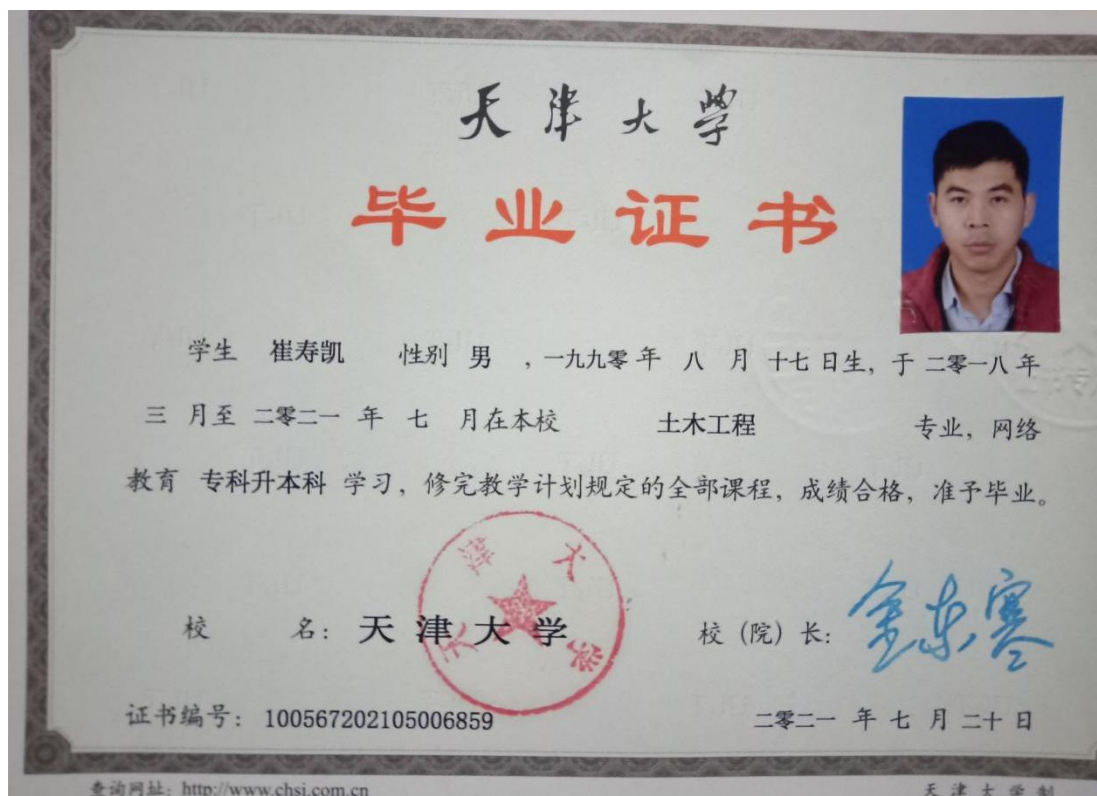 天津大学
毕业证书
学生 崔寿凯 性别 男 ，一九九零 年 八 月 十七 日生，于 二零一八 年
三 月至 二零二一 年 七 月在本校 土木工程 专业，网络
教育 专科升本科 学习，修完教学计划规定的全部课程，成绩合格，准予毕业。
天津大学
校 名：天津大学 校（院）长：金东寒
证书编号：100567202105006859 二零二一 年 七 月 二十 日
查询网址：http://www.chsi.com.cn 天津大学制